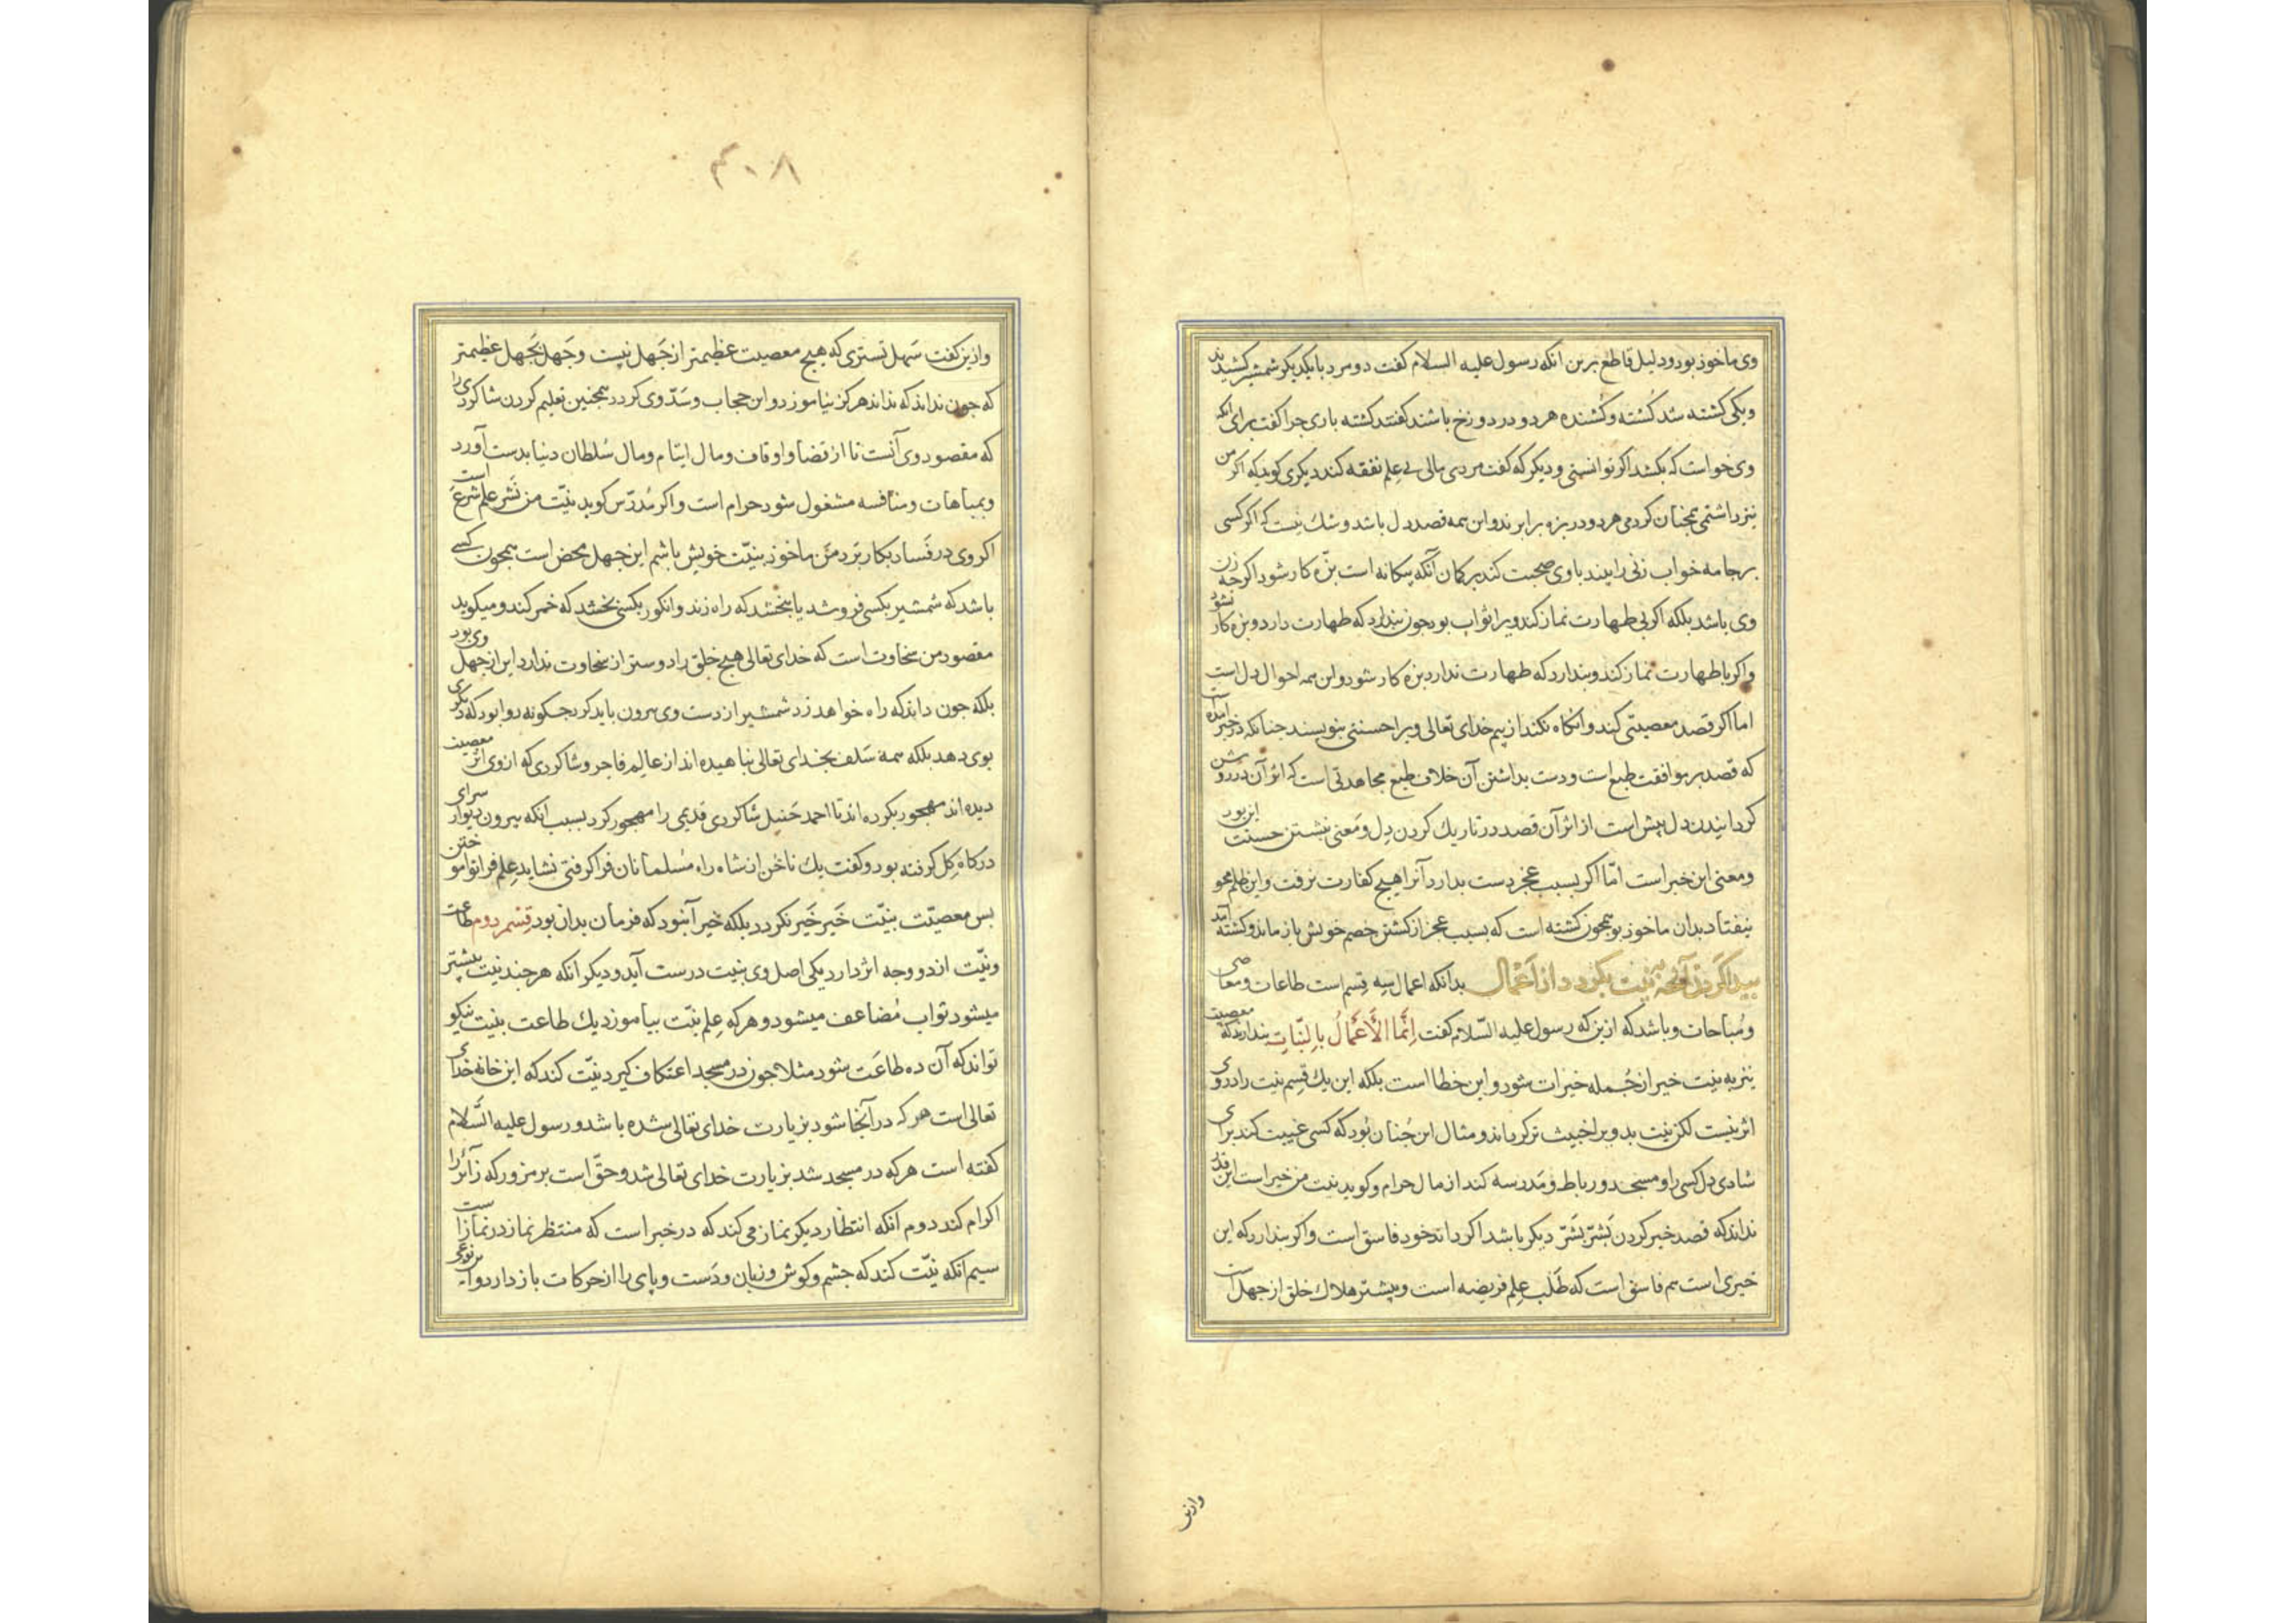 وی ماخوذ بود و دلیل قاطع برین انکه رسول علیه السلام کفت دو مرد با یکدیکر شمشیر کشیدند
ویکی کشته شد کُشته وکُشنده هر دو در دوزخ باشند کفتند کشته باری جرا کفت برای انکه
وی خواست که بکشد اکر توانستی و دیکر که کفت مردی مالی بی عِلم نفقه کند دیکری کوید که اکر من
نیز داشتمی همجنان کردمی هر دو در بزه برابرند واین همه قصد دل باشد وشك نیست که اکر کسی
برجامه خواب زنی را بیند با وی صحبت کند بر کمان آنکه بیکانه است بزه کار شود اکرجه زن
وی باشد بلکه اکر بی طهارت نماز کند ویرا ثواب بود جون پندارد که طهارت دارد وبزه کار نشود
واکر با طهارت نماز کند وپندارد که طهارت ندارد بزه کار شود واین همه احوال دل است
اما اکر قصد معصیتی کند وانکاه نکند از بیم خدای تعالی ویرا حسنتی بنویسند جنانکه در خبر آمده است
که قصد بر موافقت طبع است ودست بداشتن آن خلاف طبع مجاهدتی است که اثر آن در روشن
کردانیدن دل بیش است از اثر آن قصد در تاریك کردن دِل ومَعنی نبشتن حسنت این بود
ومعنی این خبر است امّا اکر بسبب عجز دست بدارد آنرا هیج کفارت نرفت واین ظلم محو
نیفتاد بدان ماخوذ بود همجون کشته است که بسبب عجز از کشتن خصم خویش باز ماند وکشته آمد
پیدا کردن آنجه به نیت بکردد از اَعْمَال بدانکه اعمال سِه قِسم است طاعات ومعاصی
ومُباحات وباشد که ازین که رسول علیه السّلام کفت اِنَّمَا الْاَعْمَالُ بِالنِّیَّاتِ پندارند که معصیت
نیز به نیّت خیر از جُمله خیرات شود واین خطا است بلکه این یك قِسم نیت را در وی
اثر نیست لکن نیت بد ویرا خبیث تر کرداند ومثال این جُنان بُود که کسی غیبت کند برای
شادی دل کسی را ومسجد ورباط ومَدرسه کند از مال حرام وکوید نیت من خیر است این قدر
نداند که قصد خیر کردن بَشَرّ شَرّ دیکر باشد اکر داند خود فاسق است واکر پندارد که این
خیری است هم فاسق است که طَلَب عِلم فریضه است وبیشتر هلاك خلق از جهل است
وازین
۳۰۸
وازین کفت سَهل تستری که هیج معصیت عظیمتر از جَهل نیست وجَهل بجَهل عظیمتر
که جون نداند که نداند هرکز نیاموزد واین حجاب وسَدّ وی کردد همجنین تعلیم کردن شاکردی را
که مقصود وی آنست تا از قضا واوقاف ومال ایتام ومال سُلطان دنیا بدست آورد
وبمباهات ومنافسه مشغول شود حرام است واکر مُدرّس کوید نیّت من نَشر عِلم شرع است
اکر وی در فَساد بکار بَرد مَن ماخوذ بنیّت خویش باشم این جهل محض است همجون کسی
باشد که شمشیر بکسی فروشد یا بخشد که راه زند وانکور بکسی بخشد که خمر کند ومیکوید
مقصود من سَخاوت است که خدای تعالی هیج خلق را دوستر از سخاوت ندارد این از جهل وی بود
بلکه جون داند که راه خواهد زد شمشیر از دست وی بیرون باید کرد جکونه روا بود که دیکری
بوی دهد بلکه همه سَلَف بخدای تعالی پناهیده اند از عالِم فاجر وشاکردی که از وی اثر معصیت
دیده اند مهجور بکرده اند تا احمد حَنبل شاکردی قدیمی را مهجور کرد بسبب انکه بیرون دیوار سرای
در کاه کِل کرفته بود وکفت یك ناخُن از شاه راه مُسلمانان فرا کرفتی نشاید عِلم فرا تو آموختن
بس معصیّت بنیّت خَیر خَیر نکردد بلکه خَیر آن بود که فرمان بدان بود قِسم دوم طاعت
ونیّت از دو وجه اثر دارد یکی اصل وی بنیت درست آید ودیکر انکه هر جند نیت بیشتر
میشود ثواب مُضاعف میشود وهر که عِلم نیّت بیاموزد یك طاعت بنیت نیکو
تواند که آن ده طاعَت شود مثلا جون در مسجد اعتکاف کیرد نیّت کند که این خانه خدای
تعالی است هر که در آنجا شود بزیارت خدای تعالی شده باشد ورسول علیه السَّلام
کفته است هر که در مسجد شد بزیارت خدای تعالی شد وحقّ است بر مزور که زآئر را
اکرام کند دوم انکه انتظار دیکر نماز می کند که در خبر است که منتظر نماز در نماز است
سیم انکه نیّت کند که جشم وکوش وزبان ودَست وپای را از حرکات باز دارد واین نوعی